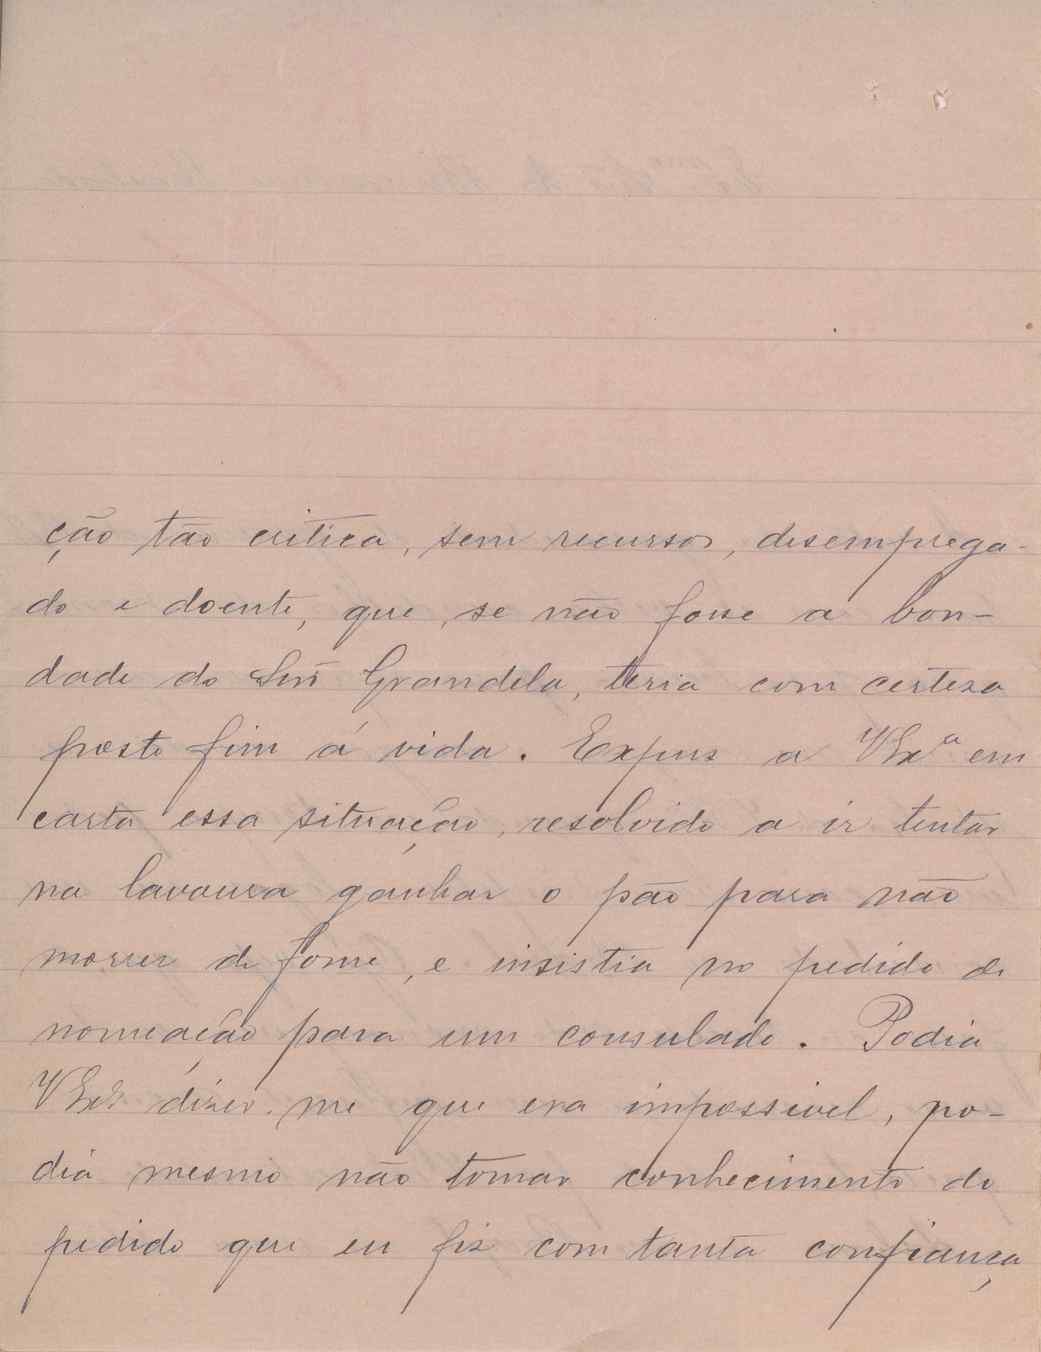 ção tão critica, sem recursos, desemprega-
do e doente, que, se não fosse a bon-
dade do Snr Grandela, teria com certeza
posto fim á vida. Expus a VExª em
carta essa situação, resolvido a ir tentar
na lavoura ganhar o pão para não
morrer de fome, e insistia no pedido de
nomeação para um consulado. Podia
VExª dizer-me que era impossivel, po-
dia mesmo não tomar conhecimento do
pedido que eu fiz com tanta confiança